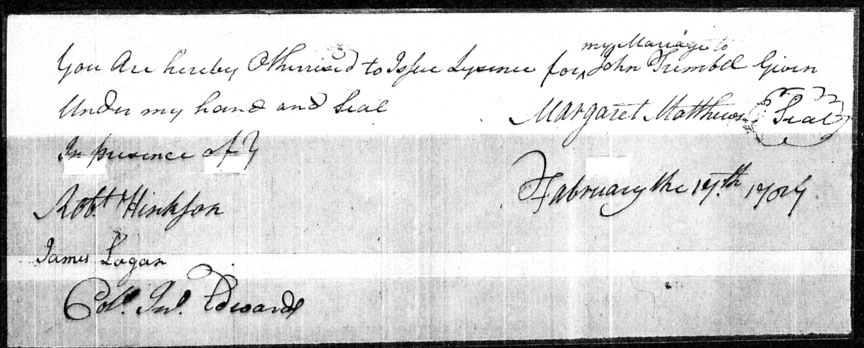 my Mariage to
You Are hereby Otherised to Issue Lysence for John Trimbel Given
Under my hand and Seal
Margaret Matthews Seal
In presence of
Robt. Hinkson
February the 17th
James Logan
Coll. Jno. Edwards